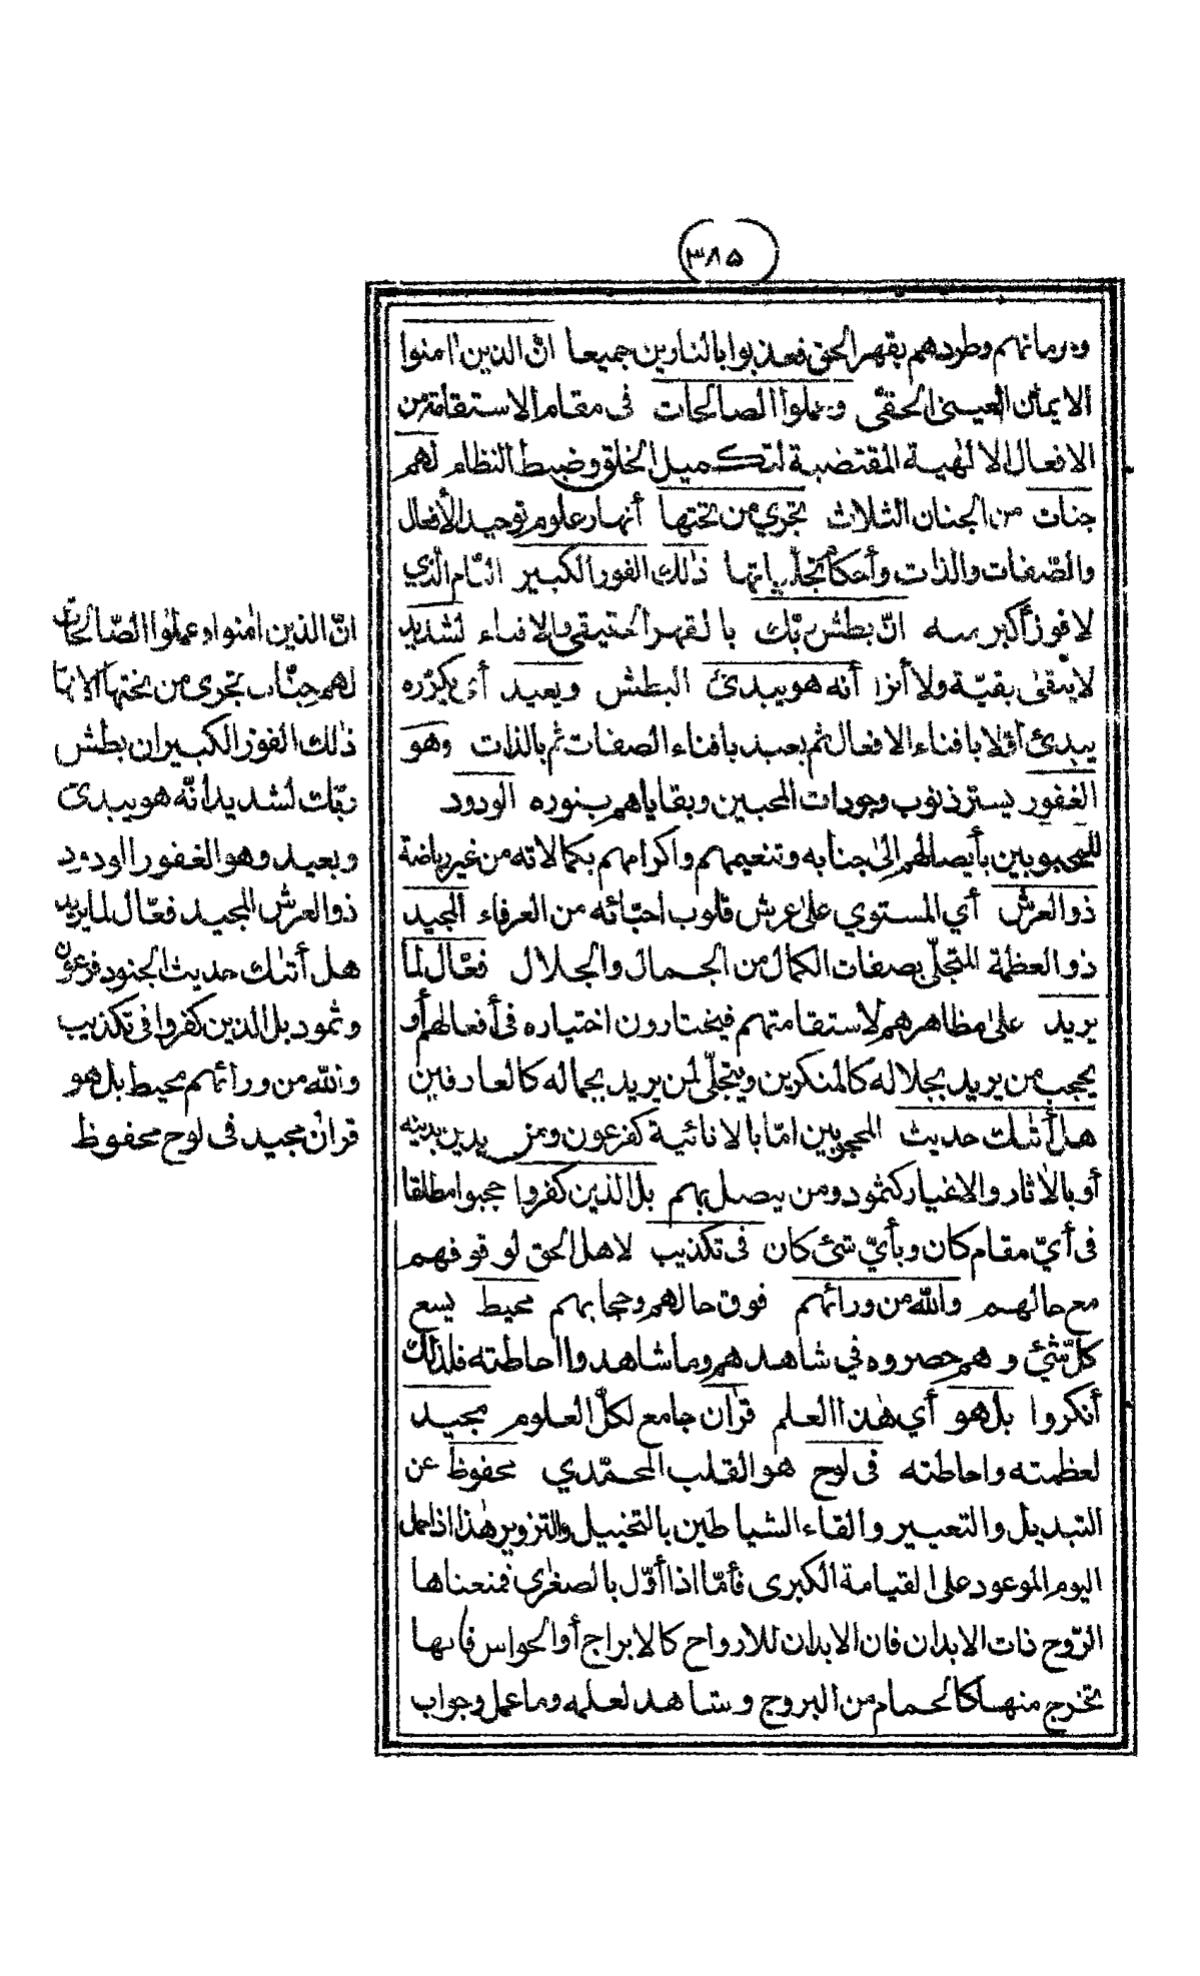 ٣٨٥
وحرمانهم وطردهم بقهر الحق فعذبوا بالنارين جميعا انّ الذين اٰمنوا
الايمان العيني الحقّي وعملوا الصالحات فى مقام الاستقامة من
الافعال الالٰهية المقتضية لتكميل الخلق وضبط النظام لهم
جنات من الجنان الثلاث تجري من تحتها أنهار علوم توحيد الأفعال
والصّفات والذات وأحكام تجلّياتها ذٰلك الفوز الكبير التّام الّذي
لا فوز أكبر منه انّ بطش ربّك بالقهر الحقيقي والافناء لشديد
لا يبقىٰ بقيّة ولا أثرا أنه هو يبدئ البطش ويعيد أي يكرّره
يبدئ أوّلا بافناء الافعال ثم يعيد بافناء الصفات ثم بالذات وهو
الغفور يستر ذنوب وجودات المحبين وبقاياهم بنوره الودود
للمحبوبين بأيصالهم الىٰ جنابه وتنعيمهم واكرامهم بكمالاته من غير رياضة
ذو العرش أي المستوي علىٰ عرش قلوب احبّائه من العرفاء المجيد
ذو العظمة المتجلّي بصفات الكمال من الجمال والجلال فعّال لما
يريد علىٰ مظاهرهم لاستقامتهم فيختارون اختياره فى أفعالهم أو
يحجب من يريد بجلاله كالمنكرين ويتجلّي لمن يريد بجماله كالعارفين
هل أتٰك حديث المحجوبين امّا بالانائية كفرعون ومن يدين بدينه
أو بالاٰثار والاغيار كثمود ومن يتصل بهم بل الذين كفروا حجبوا مطلقا
فى أيّ مقام كان وبأيّ شئ كان فى تكذيب لاهل الحق لوقوفهم
مع حالهم والله من ورائهم فوق حالهم وحجابهم محيط يسع
كلّ شئ وهم حصروه في شاهدهم وما شاهدوا احاطته فلذلك
أنكروا بل هو أي هٰذا العلم قراٰن جامع لكلّ العلوم مجيد
لعظمته واحاطته فى لوح هو القلب المحمّدي محفوظ عن
التبديل والتعبير والقاء الشياطين بالتخييل والتزوير هٰذا اذا حمل
اليوم الموعود على القيامة الكبرى فأمّا اذا أوّل بالصغرٰى فمعناها
الرّوح ذات الابدان فان الابدان للارواح كالابراج أو الحواس فانها
تخرج منها كالحمام من البروج وشاهد لعلمه وما عمل وجواب
انّ الذين اٰمنوا وعملوا الصّالحات
لهم جنّات تجرى من تحتها الانهار
ذٰلك الفوز الكبير ان بطش
ربّك لشديد انّه هو يبدئ
ويعيد وهو الغفور الودود
ذو العرش المجيد فعّال لما يريد
هل أتٰك حديث الجنود فرعون
وثمود بل الذين كفروا فى تكذيب
والله من ورائهم محيط بل هو
قراٰن مجيد فى لوح محفوظ